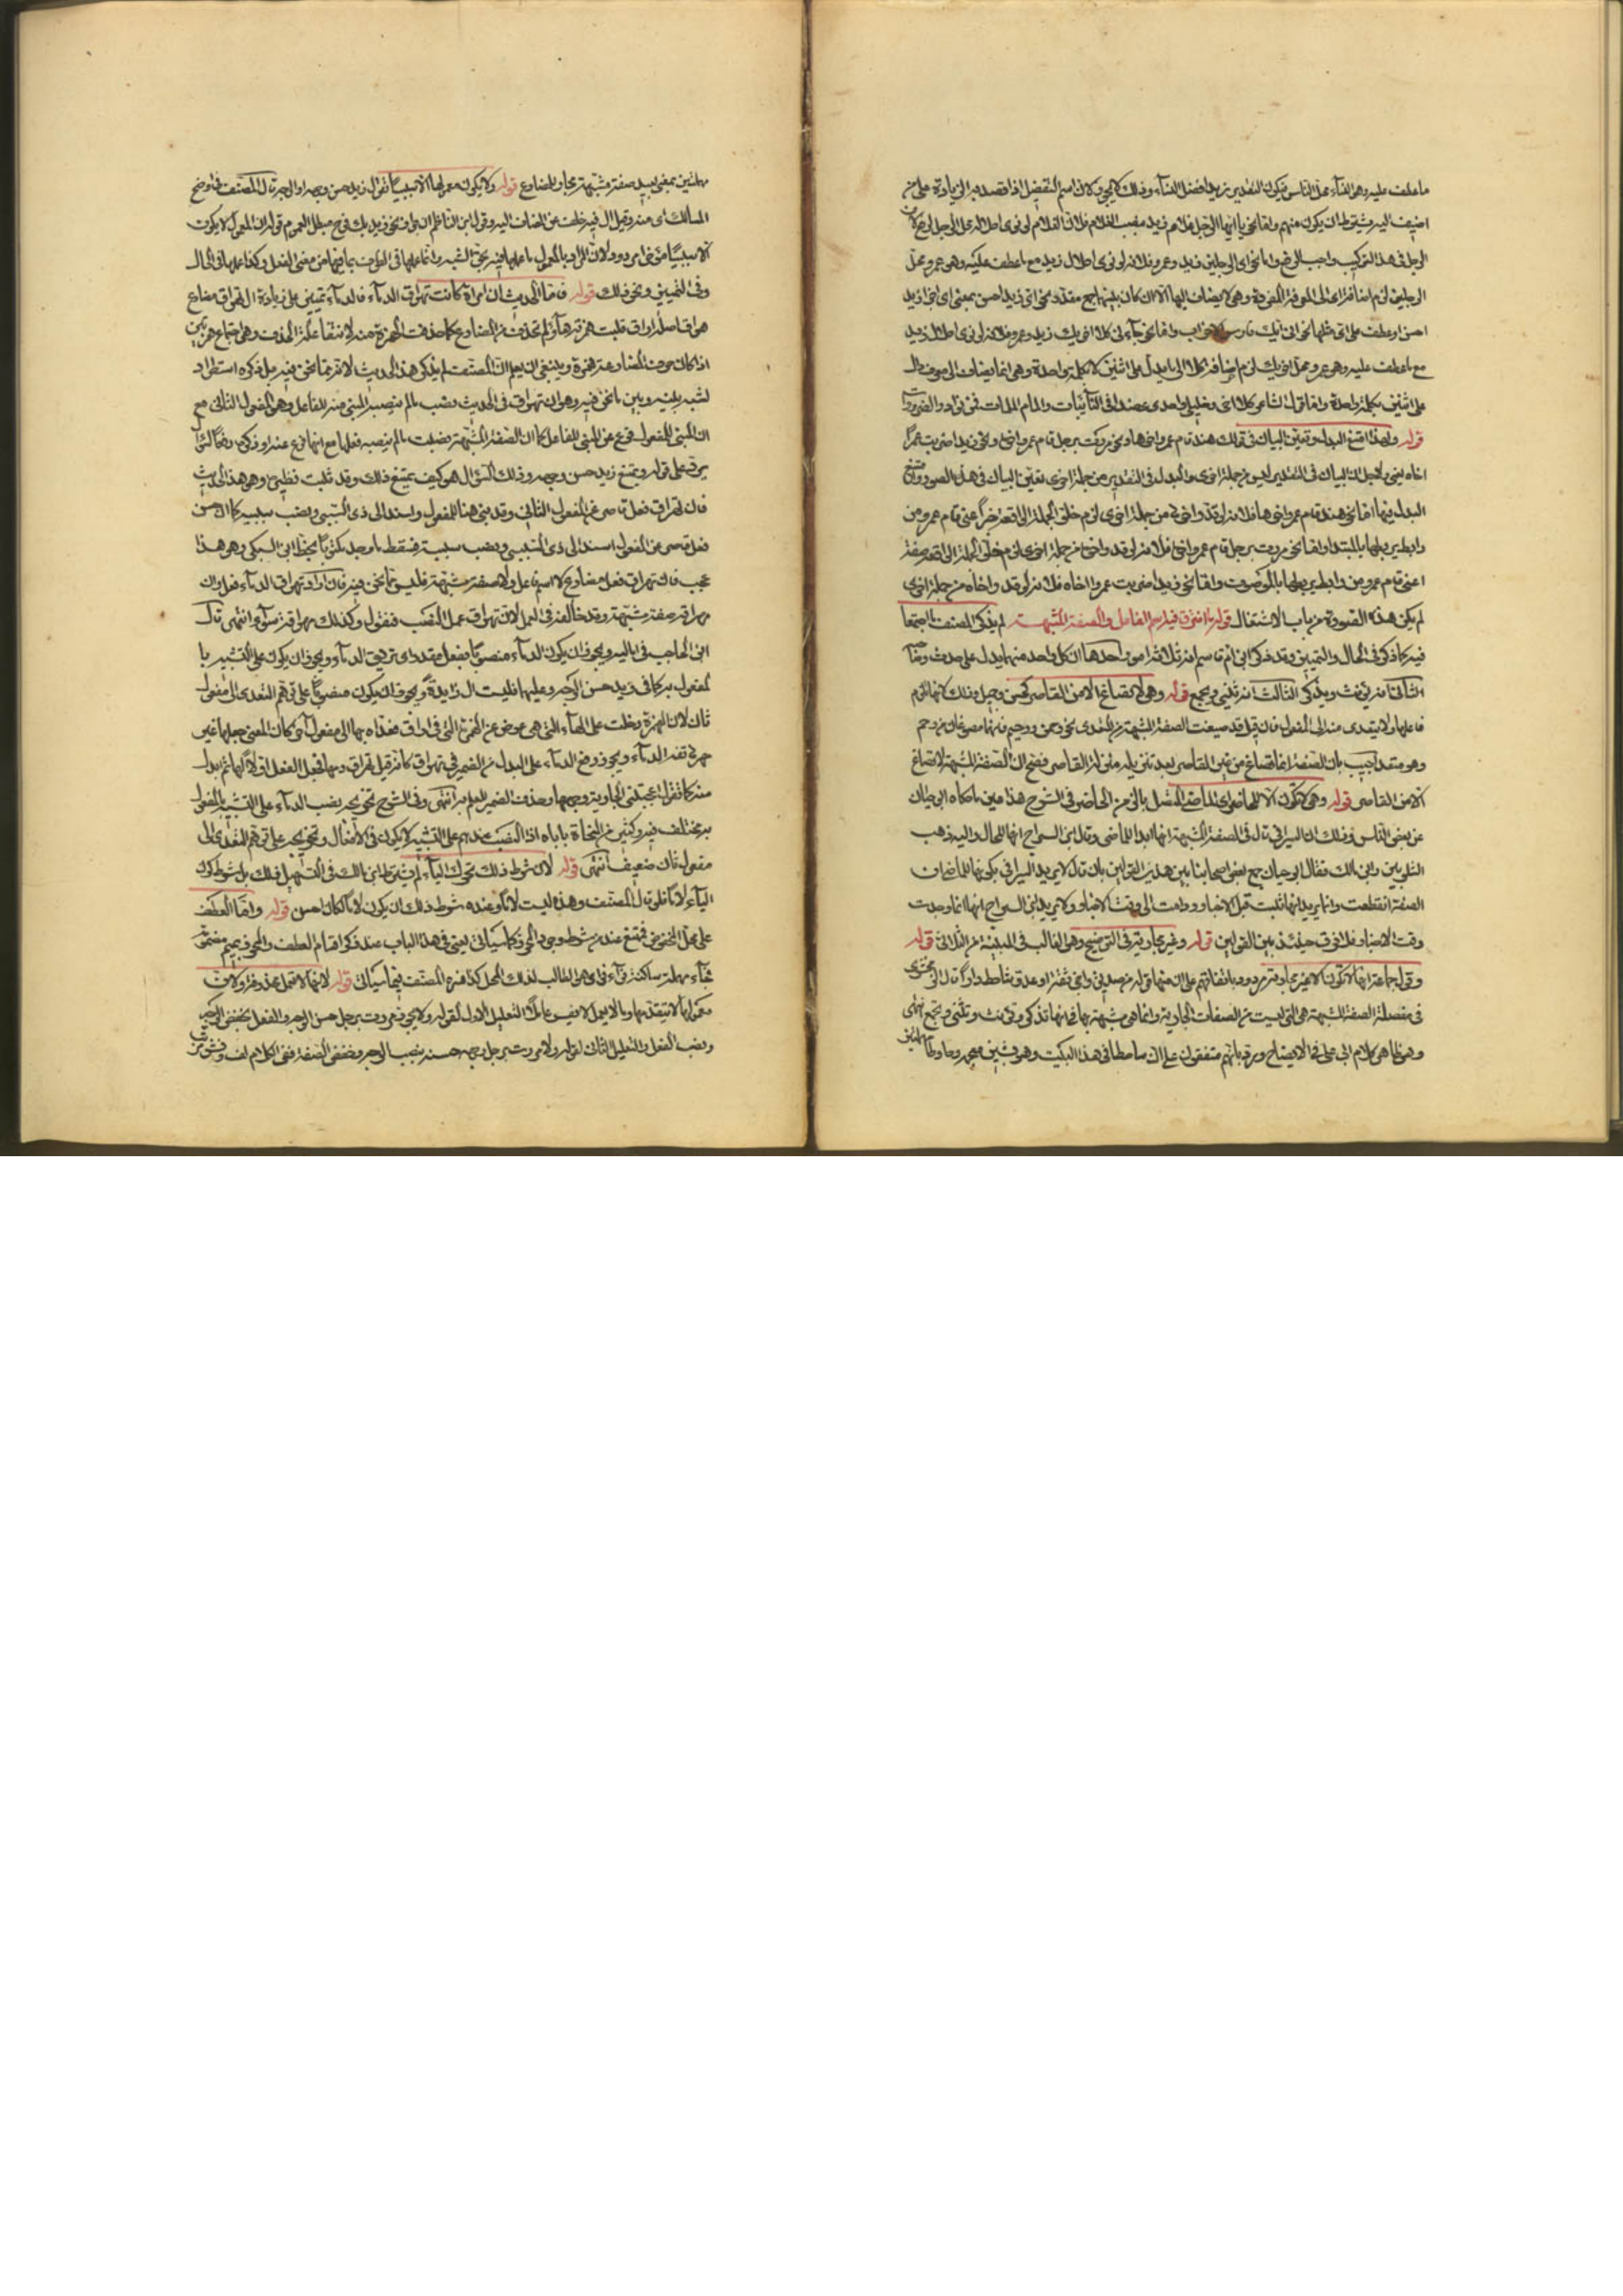 ما عطف عليه وهو النساء عند الناس فيكون التقدير زيد افضل النساء وذلك لا يجوز لان اسم التفضيل اذا قصد به الزيادة على من
اضيف اليه يشترط ان يكون منهم واما نحو يا ايها الرجل غلام زيد
الرجل في هذا التركيب واجب الرفع واما نحو اي الرجلين زيد وعمرو فلانه لو نوى احلال زيد مع ما عطف عليه وهو عمرو محل
الرجلين لزم اضافة اي الى المعرفة المفردة وهي لا يضاف اليها الا ان كان بينهما جمع مقدر نحو اي زيد احسن بمعنى اي اجزا زيد
احسن او عطف على اي مثلها نحو ايي وايك فارس الاحزاب واما نحو جاءني كلا اخويك زيد وعمرو فلانه لو نوى احلال زيد
مع ما عطف عليه وهو عمرو محل اخويك لزم اضافة كلا الى ما يدل على اثنين لا بكلمة واحدة وهي انما يضاف الى موضع دال
على اثنين بكلمة واحدة واما قول الشاعر كلا اخي وخليلي واجدي عضدا في النائبات والمام الملمات فمن نوادر الضرورات
قوله ولهذا امتنع البدل وتعين البيان في قولك هند قام عمرو اخوها ونحو مررت برجل قام عمرو اخوه ونحو زيد ضربت عمرا
اخاه يعني ولاجل ان البيان في التقدير ليس من جملة اخرى والبدل في التقدير من جملة اخرى تعين البيان في هذه الصور وامتنع
البدل فيها اما نحو هند قام عمرو اخوها فلانه لو قدر اخوها من جملة اخرى لزم خلو الجملة الواقعة خبرا اعني قام عمرو من
رابط يربطها بالمبتدا واما نحو مررت برجل قام عمرو اخوه فلانه لو قدر اخوه من جملة اخرى لزم خلو الجملة الواقعة صفة
اعني قام عمرو من رابط يربطها بالموصوف واما نحو زيد ضربت عمرا اخاه فلانه لو قدر اخاه من جملة اخرى
لم يكن هذه الصورة من باب الاشتغال قوله ما افترق فيه اسم الفاعل والصفة المشبهة لم يذكر المصنف ما اجتمعا
فيه كما ذكر في الحال والتمييز وقد ذكر ابن ام قاسم انه ثلاثة امور احدها ان كل واحد منهما يدل على حدث وصاحبه
الثاني انه يؤنث ويذكر الثالث انه يثنى ويجمع قوله وهي لا تصاغ الا من القاصر كحسن وجميل وذلك لانها لازم
فاعلها ولا يتعدى منه الى المفعول فان قيل قد صيغت الصفة المشبهة من المتعدي نحو رحمن ورحيم فانهما مصوغان من رحم
وهو متعد اجيب بان الصفة انما تصاغ من غير القاصر بعد تنزيله منزلة القاصر فصح ان الصفة المشبهة لا تصاغ
الا من القاصر قوله وهي لا تكون الا للحاضر اي الماضي المتصل بالزمن الحاضر في الشرح هذا مبين ما حكاه ابو حيان
عن بعض الناس وذلك ان السيرافي قال في الصفة المشبهة انها ابدا للماضي وقال ابن السراج انها للحال واليه ذهب
الشلوبين وابن مالك فقال ابو حيان جمع بعض اصحابنا بين هذين القولين بان قال لا يريد السيرافي بكونها للماضي ان
الصفة انقطعت وانما يريد انها ثبتت قبل الاخبار ودامت الى وقت الاخبار ولا يريد ابن السراج انها انما وجدت
وقت الاخبار فلا فرق حينئذ بين القولين قوله وغير مجاريته في التوضيح وهو الغالب في المبنية من الثلاثي قوله
وقول جماعة انها لا تكون الا غير مجاوبة مردود باتفاقهم على ان منها قوله من صديق او اخي ثقة او عدو شاحط دارا قال الزمخشري
في مفصله الصفة المشبهة هي التي ليست من الصفات الجارية وانما هي مشبهة بها في انها تذكر وتؤنث وتثنى وتجمع
وهو ظاهر كلام ابي علي في الايضاح ويرد بانهم متفقون على ان شاحطا في هذا البيت وهو بشين معجمة وحاء وطاء
مهملتين بمعنى بعيد صفة مشبهة مجاوبة للمضارع قوله ولا يكون معمولها الا سببيا تقول زيد حسن وجهه او الوجه قال المصنف في اوضح
المسالك اي منه وقيل ان ال فيه خلف عن المضاف اليه وقول ابن الناظم ان نحو زيد بك فرح مبطل لعموم قوله ان المعمول لا يكون
الا سببيا مؤخرا مردود لان المراد بالمعمول ما عملها فيه بحق الشبه وانما عملها في الظرف بما فيها من معنى الفعل وكذا عملها في الحال
وفي التمييز ونحو ذلك قوله فاما الحديث ان امراة كانت تهراق الدماء فالدماء تمييز على زيادة ال تهراق مضارع
هراق اصله اراق قلبت همزته هاء ولم تحذف من المضارع كما حذفت الهمزة منه لانتفاء علة الحذف وهي اجتماع همزتين
اذا كان حرف المضارعة همزة وينبغي ان يعلم ان المصنف لم يذكر هذا الحديث لانه مما نحن فيه بل ذكره استطرادا
لشبه بينه وبين ما نحن فيه وهو ان تهراق في الحديث نصب ما لم ينصبه المبني منه للفاعل وهو المفعول الثاني مع
ان المبني للمفعول فرع عن المبني للفاعل كما ان الصفة المشبهة نصبت ما لم ينصبه فعلها مع انها فرع عنه او ذكره دفعا لسؤال
يرد على قوله ويمتنع زيد حسن وجهه وذلك السؤال هو كيف يمتنع ذلك وقد ثبت نظيره وهو هذا الحديث
فان تهراق فعل قاصر عن المفعول الثاني وقد بني هنا للمفعول واسند الى ذي السببي ونصب سببيه كما ان حسن
فعل قاصر عن المفعول اسند الى ذي السببي ونصب سببيه فسقط ما وجد مكتوبا بخط ابن السبكي وهو هذا
عجيب فان تهراق فعل مضارع لا اسم فاعل ولا صفة مشبهة فليس مما نحن فيه فان اراد تهراق الدماء فعل وان
مهراقة صفة مشبهة وقد خالفته في العمل لان تهراق عمل النصب فنقول وكذلك مهراقة سواء انتهى قال
ابن الحاجب في اماليه ويجوز ان يكون الدماء منصوبا بفعل مقدر اي تريق الدماء ويجوز ان يكون على التشبيه با
لمفعول به كما في زيد حسن الوجه وعليهما فليست ال زايدة ويجوز ان يكون منصوبا على توهم التعدي الى مفعول
ثان لان الهمزة دخلت على الهاء التي هي عوض عن الهمزة التي في اراق فعداه بها الى مفعول آخر كان المعنى جعلها غير
مهريقة الدماء ويجوز رفع الدماء على البدل من الضمير في تهراق كانه قيل تهراق دماها فجعل الفعل اولا لها ثم ابدل
منه كما تقول اعجبتني الجارية وجهها وحذف الضمير للعلم به انتهى وفي الشرح تخريجه نصب الدماء على التشبيه بالمفعول
به مختلف فيه وكثير من النحاة ياباه اذ النصب عندهم على التشبيه لا يكون في الافعال وتخريجه على توهم التعدي الى
مفعول ثان ضعيف انتهى قوله لان شرط ذلك تحرك الياء لم يشترط ابن مالك في التسهيل ذلك بل شرط كون
الياء لاما قال المصنف وهذه ليست لاما وعنده شرط ذلك ان يكون لاما لكان احسن قوله واما العطف
على محل المخفوض فممتنع عند من شرط وجود المحرز كما سياتي يعني في هذا الباب عند ذكر اقسام العطف والمحرز بميم مضمومة
فحاء مهملة ساكنة فراء فزاي هو الطالب لذلك المحل كذا فسره المصنف فيما سياتي قوله لانها لا تعمل محذوفة ولان
معمولها لا يتقدمها وما لا يعمل لا يفسر عاملا التعليل الاول لقوله ولا يجوز مررت برجل حسن الوجه والفعل بخفض الوجه
ونصب الفعل والتعليل الثاني لقوله ولا مررت برجل وجهه حسنه بنصب الوجه وخفض الصفة ففي الكلام لف ونشر مرتب